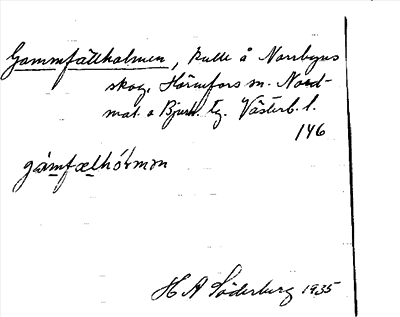 Gammfällholmen, kulle å Norrbyns
skog, Hörnefors sn. Nord-
mal. o Bjurh. tg. Västerb. l.
146
gámfælhóɫmən
H A Söderberg 1935